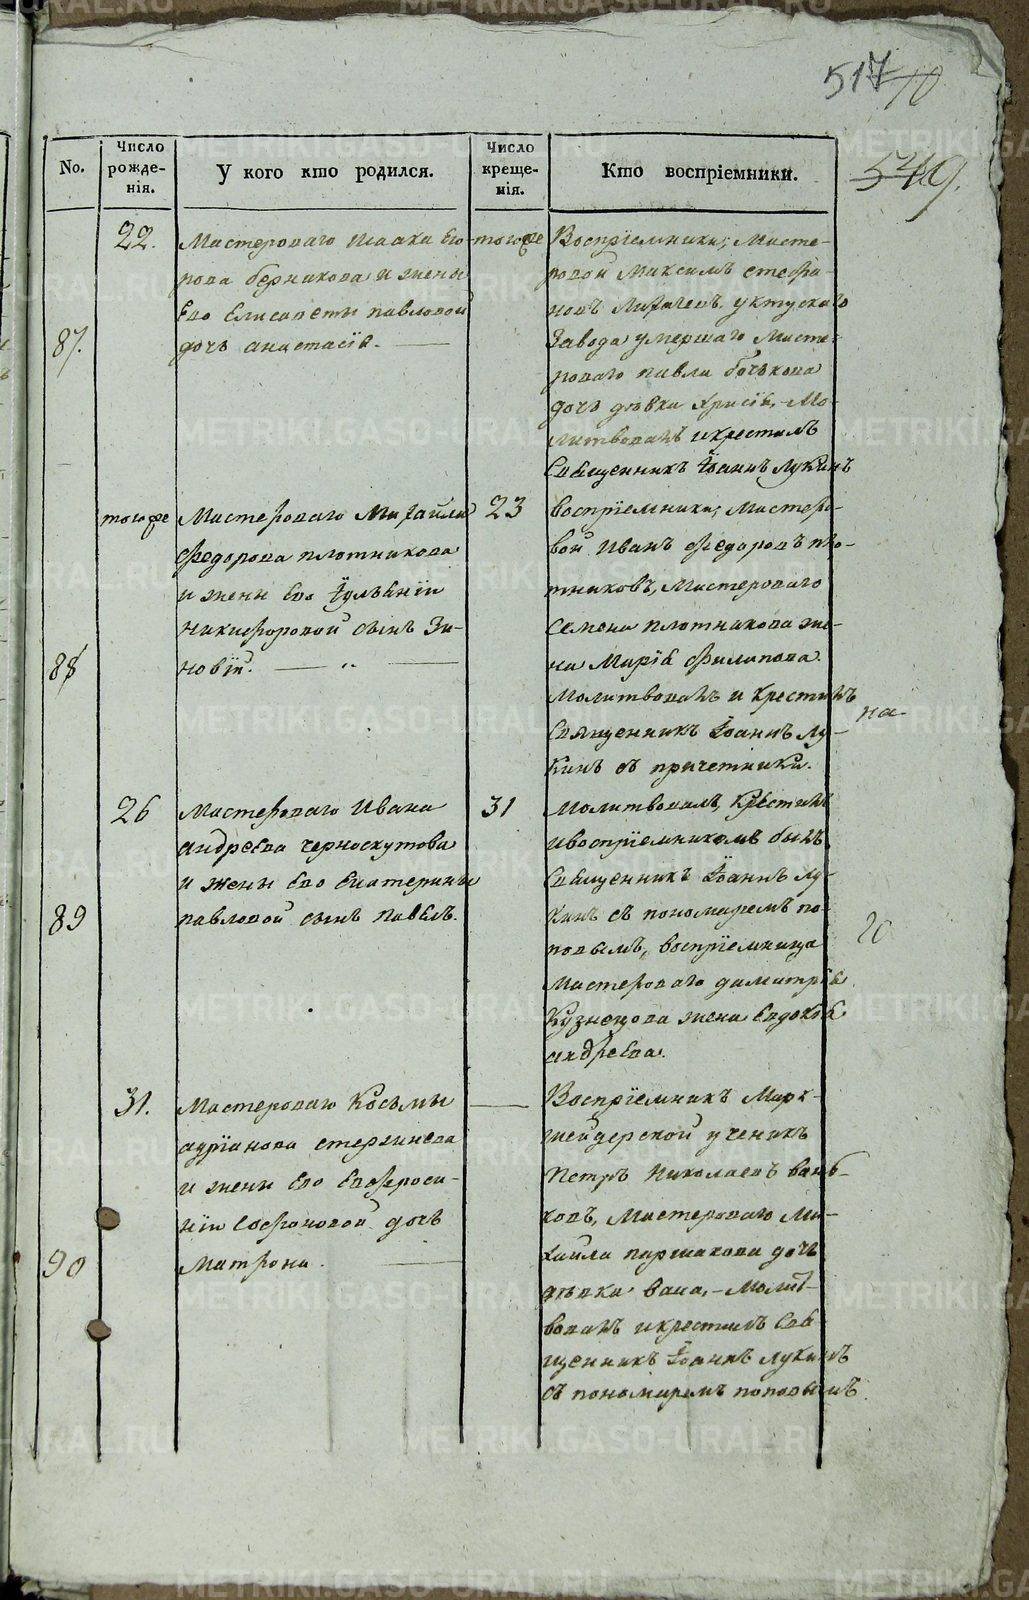 517
10
549.
No.
Число рожде-нія.
У кого кто родился.
Число креще-нія.
Кто воспріемники.
87.
22.
Мастероваго Исаака Его-
рова берникова и жены
Его Елисаветы павловой
дочь анастасія.
тогоже
Воспріемники, Масте-
ровой Максимъ стефа-
новъ Лихачевъ, уктускаго
завода умершаго Масте-
роваго павла бочькова
дочь девка Хрисія, Мо-
литвовалъ и крестилъ
Священникъ Іоаннъ Лукинъ
88
тогоже
Мастероваго Михайла
Федорова плотникова
и жены Его Іуліаніи
никифоровой сынъ Зи-
новій.
23
воспріемники, Мастеро-
вой Иванъ Федоровъ пло-
тниковъ, Мастероваго
Семена плотникова же-
на Марія Филипова.
Молитвовалъ и крестилъ
Священникъ Іоаннъ Лу-
кинъ съ причетники.
на
89
26
Мастероваго Ивана
андреева черноскутова
и жены Его Екатерины
павловой сынъ павелъ.
31
Молитвовалъ, Крестилъ
и воспріемникомъ былъ
Священникъ Іоаннъ Лу-
кинъ съ пономаремъ по-
повымъ, воспріемница
Мастероваго димитрія
Кузнецова жена Евдокія
андреева.
90
31.
Мастероваго Косьмы
адріанова стерхинева
и жены Его Евфроси-
ніи Софроновой дочь
Матрона.
Воспріемникъ Марк-
шейдерской ученикъ
Петръ Николаевъ
Мастероваго Ми-
хайла паршакова дочь
девка Васа, Молит-
вовалъ и крестилъ Свя-
щенникъ Іоаннъ Лукинъ
съ пономаремъ поповымъ
METRIKI.GASO-URAL.RU